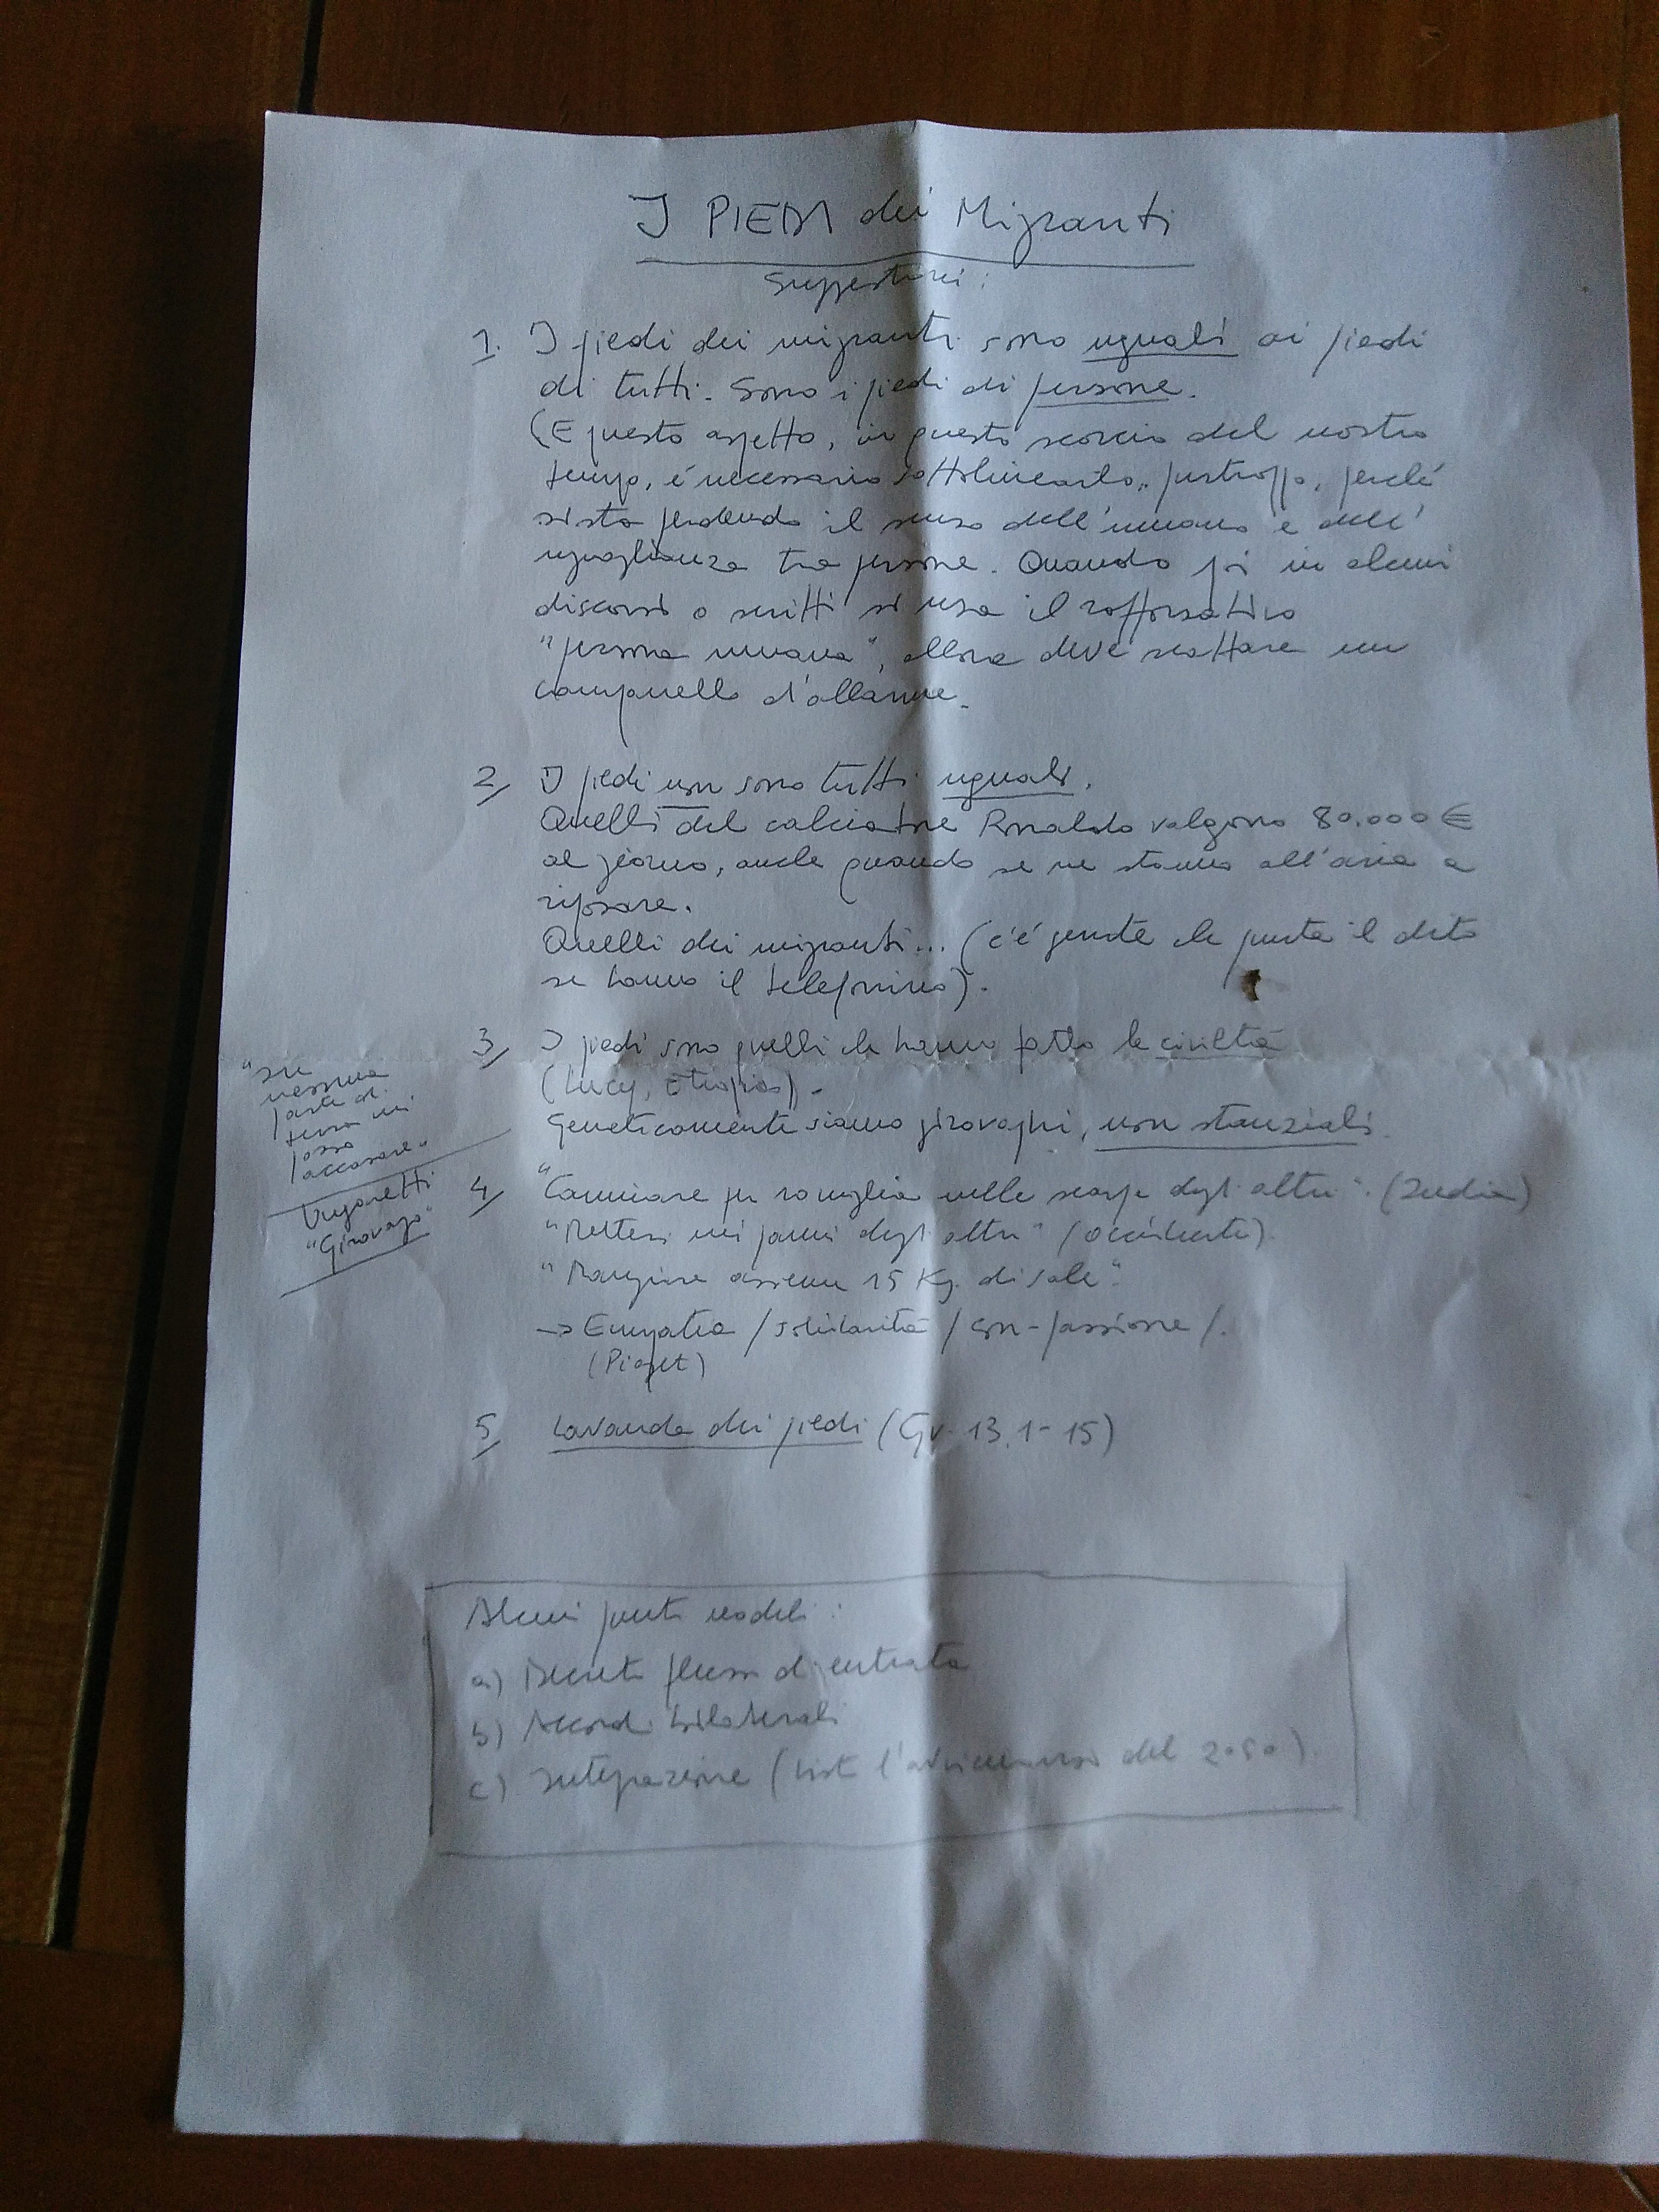 I PIEDI dei Migranti
Suggestioni:
1. I piedi dei migranti sono uguali ai piedi
di tutti. Sono i piedi di persone.
(E questo aspetto, in questo scorcio del nostro
tempo, è necessario sottolinearlo, purtroppo, perché
si sta perdendo il senso dell'umano e dell'
uguaglianza tra persone. Quando poi in alcuni
discorsi o scritti si usa il rafforzativo
"persona umana", allora deve scattare un
campanello d'allarme.
2) I piedi non sono tutti uguali.
Quelli del calciatore Ronaldo valgono 80.000 €
al giorno, anche quando se ne stanno all'aria a
riposare.
Quelli dei migranti... (c'è gente che punta il dito
se hanno il telefonino).
3) I piedi sono quelli che hanno fatto le civiltà
(Lucy, Etiopia).
Geneticamente siamo girovaghi, non stanziali.
"In
nessuna
parte di
terra mi
posso
accasare"
Ungaretti
"Girovago"
4) "Camminare per miglia nelle scarpe degli altri". (India)
"Mettersi nei panni degli altri" (occidente).
"Mangiare assieme 15 Kg. di sale".
-> Empatia / solidarietà / con-passione /.
(Piaget)
5) Lavanda dei piedi (Gv. 13, 1-15)
Alcuni punti nodali:
a) Decreti flussi di entrata
b) Accordi bilaterali
c) Integrazione (visto l'avvicinarsi del 2050).